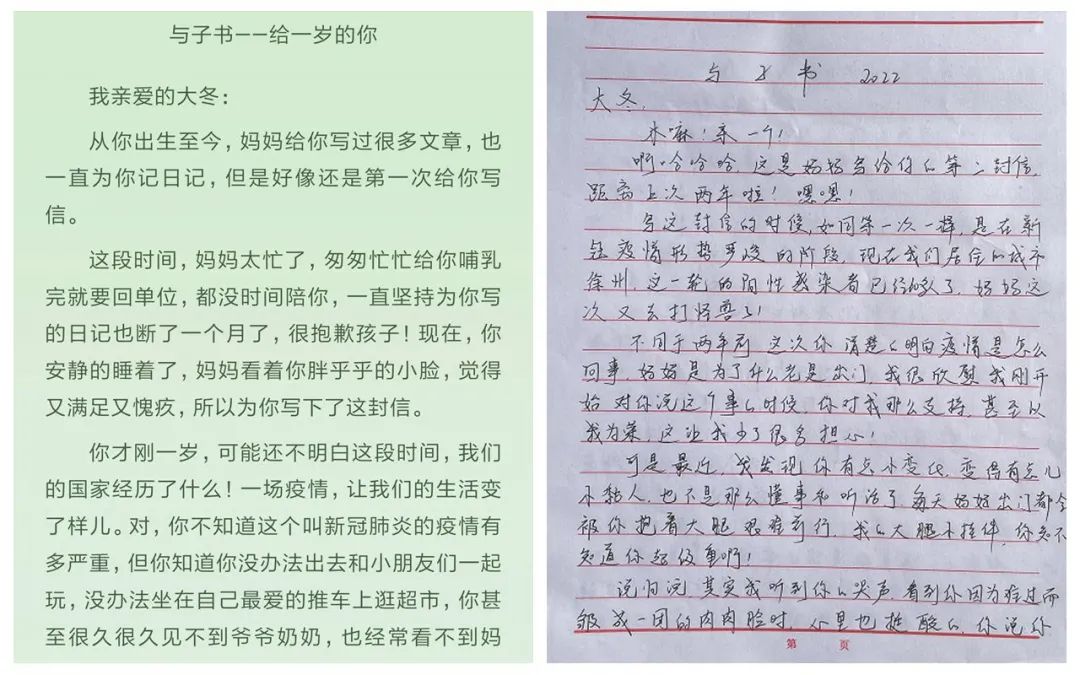 与子书——给一岁的你
我亲爱的大冬：
从你出生至今，妈妈给你写过很多文章，也
一直为你记日记，但是好像还是第一次给你写
信。
这段时间，妈妈太忙了，匆匆忙忙给你哺乳
完就要回单位，都没时间陪你，一直坚持为你写
的日记也断了一个月了，很抱歉孩子！现在，你
安静的睡着了，妈妈看着你胖乎乎的小脸，觉得
又满足又愧疚，所以为你写下了这封信。
你才刚一岁，可能还不明白这段时间，我们
的国家经历了什么！一场疫情，让我们的生活变
了样儿。对，你不知道这个叫新冠肺炎的疫情有
多严重，但你知道你没办法出去和小朋友们一起
玩，没办法坐在自己最爱的推车上逛超市，你甚
至很久很久见不到爷爷奶奶，也经常看不到妈
与子书 2022
大冬，
木嘛！亲一个！
啊哈哈哈，这是妈妈写给你的第二封信，
距离上次两年啦！
写这封信的时候，如同第一次一样，是在新
冠疫情形势严峻的阶段，现在我们居住的城市
徐州，这一轮的阳性感染者已经了，妈妈这
次又去打怪兽了！
不同于两年前，这次你清楚的明白疫情是怎么
回事，妈妈是为了什么老是出门，我很欣慰我刚开
始对你说这个事的时候，你对我那么支持，甚至以
我为荣，这让我少了很多担心！
可是最近，我发现你有点小变化，变得有点儿
小黏人，也不是那么懂事和听话了，每天妈妈出门都会
被你抱着大腿艰难前行，我的大腿小挂件，你知不
知道你超级重啊！
说归说，其实我听到你的哭声，看到你因为难过而
皱成一团的肉肉脸时，心里也挺酸的，你说你
第 页